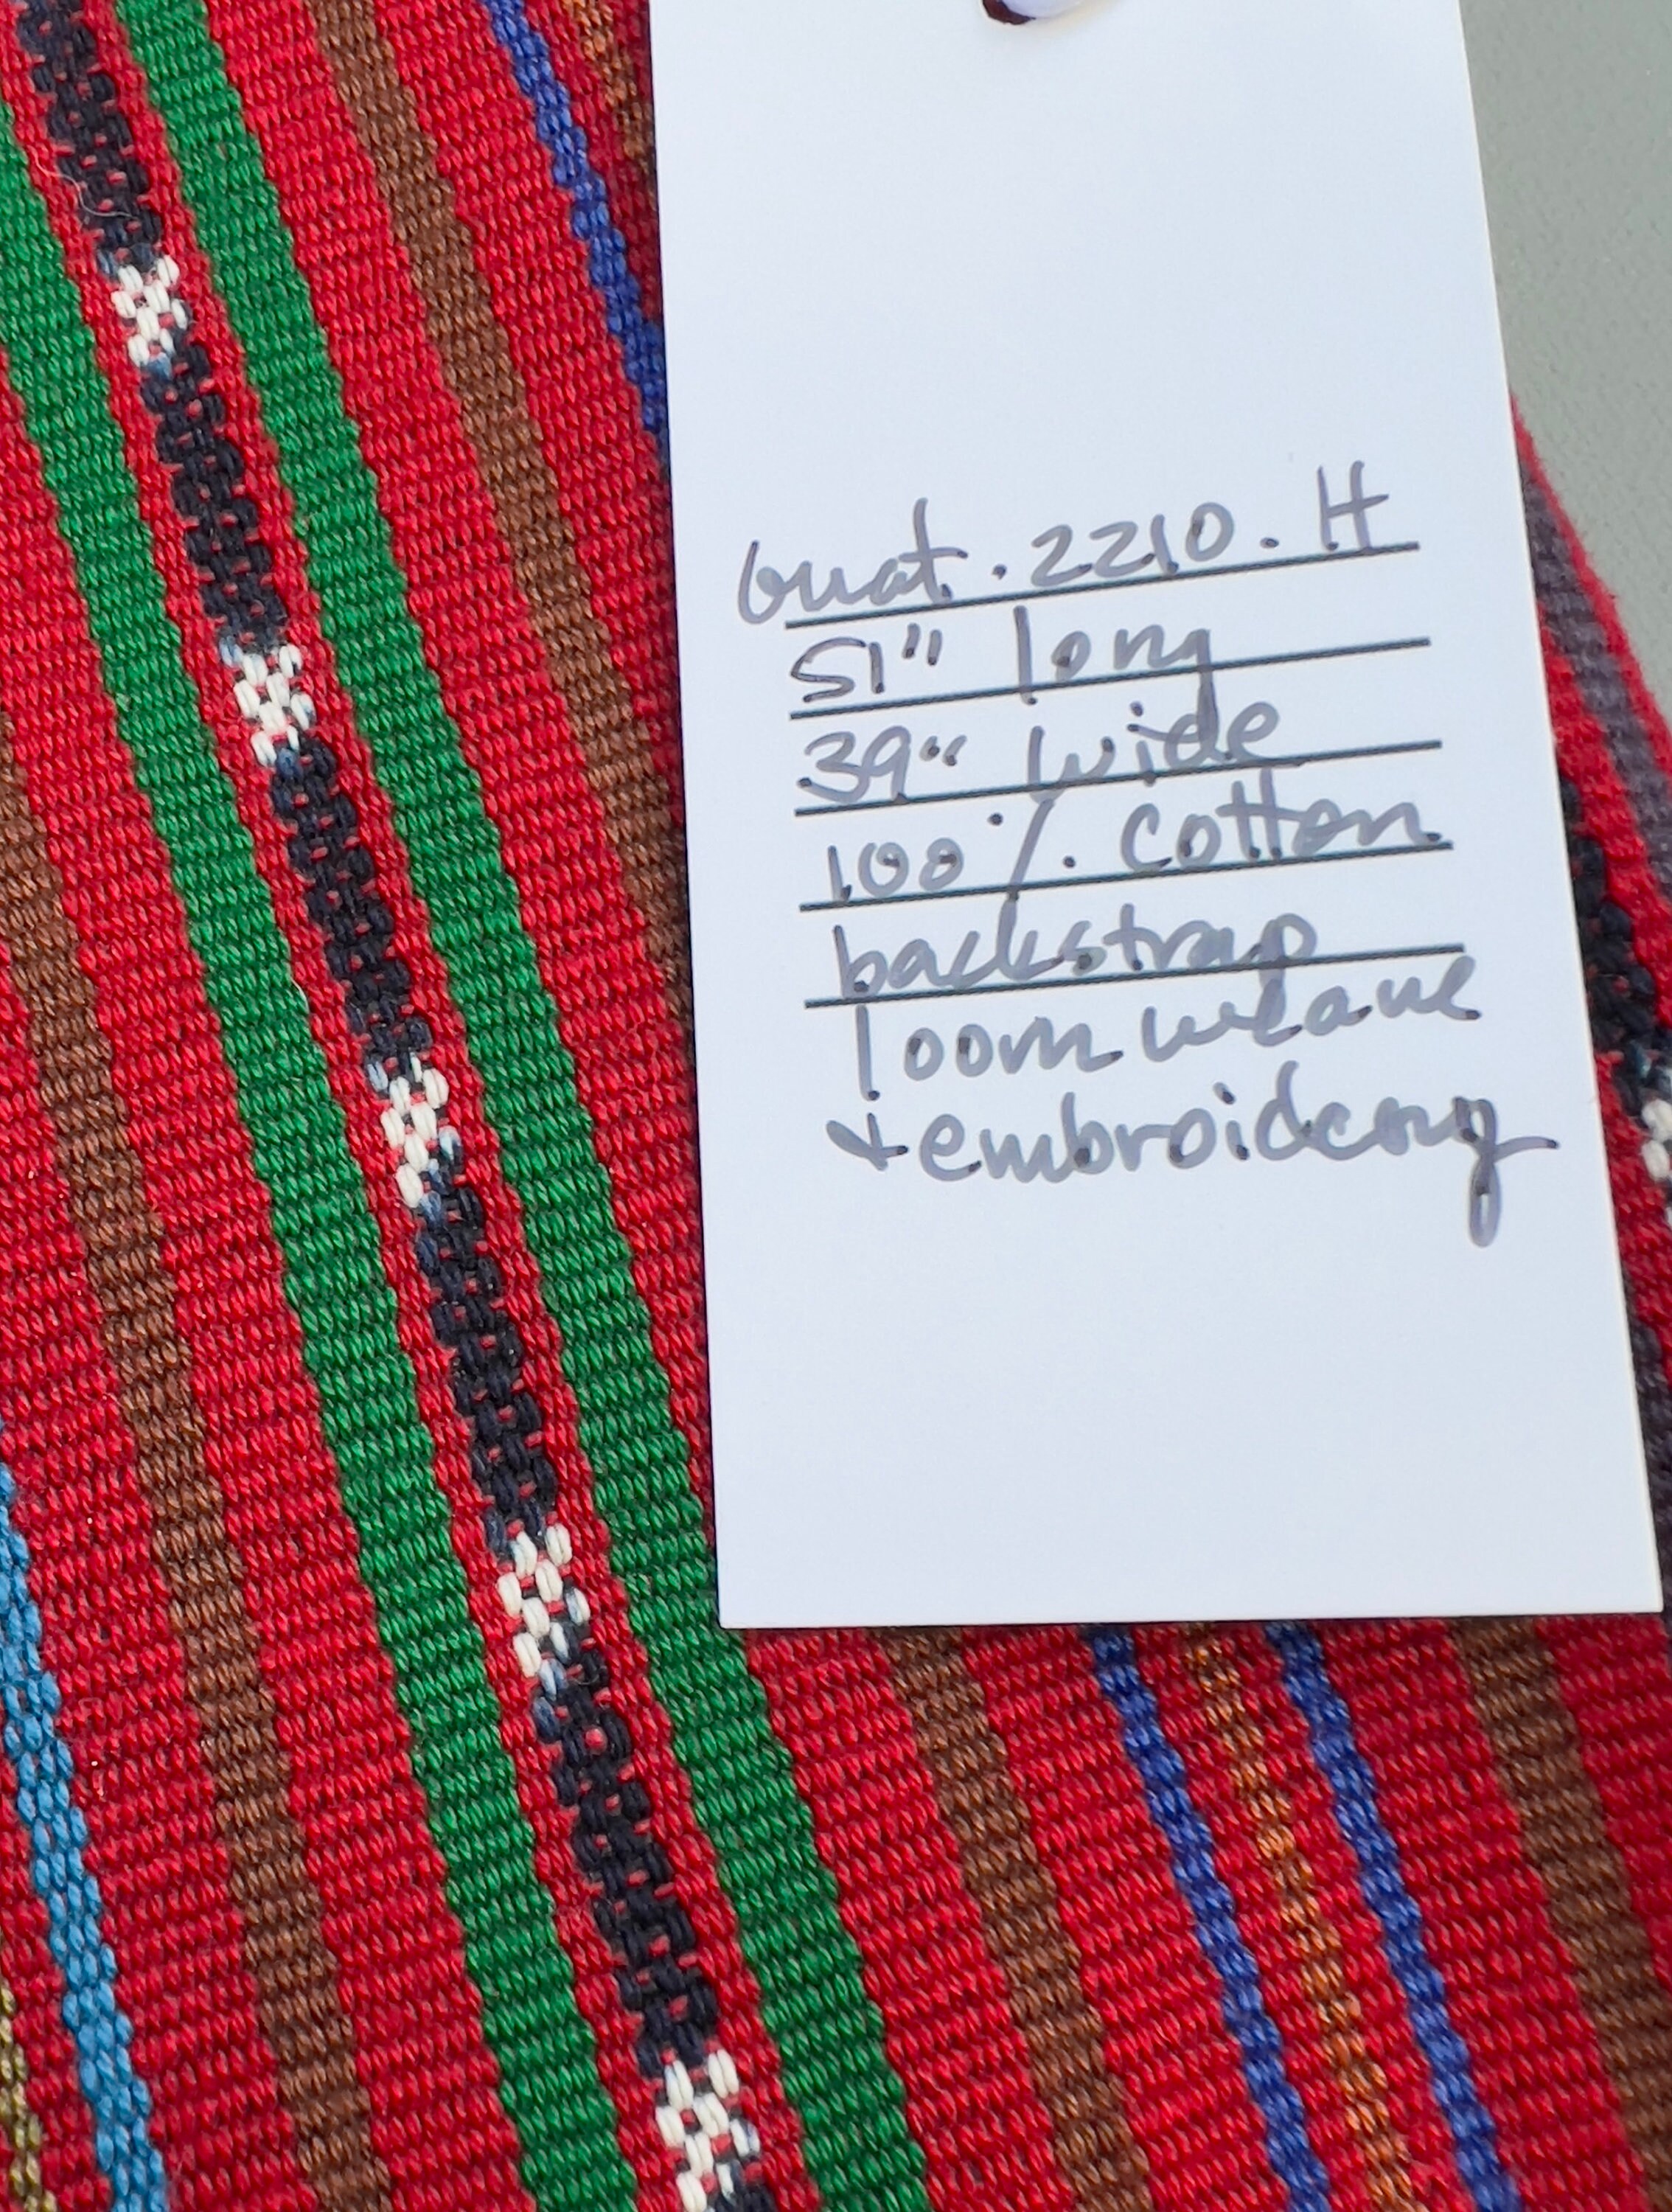 Guat. 2210. H
51" long
39" wide
100%. cotton
backstrap
loom weave
+ embroidery